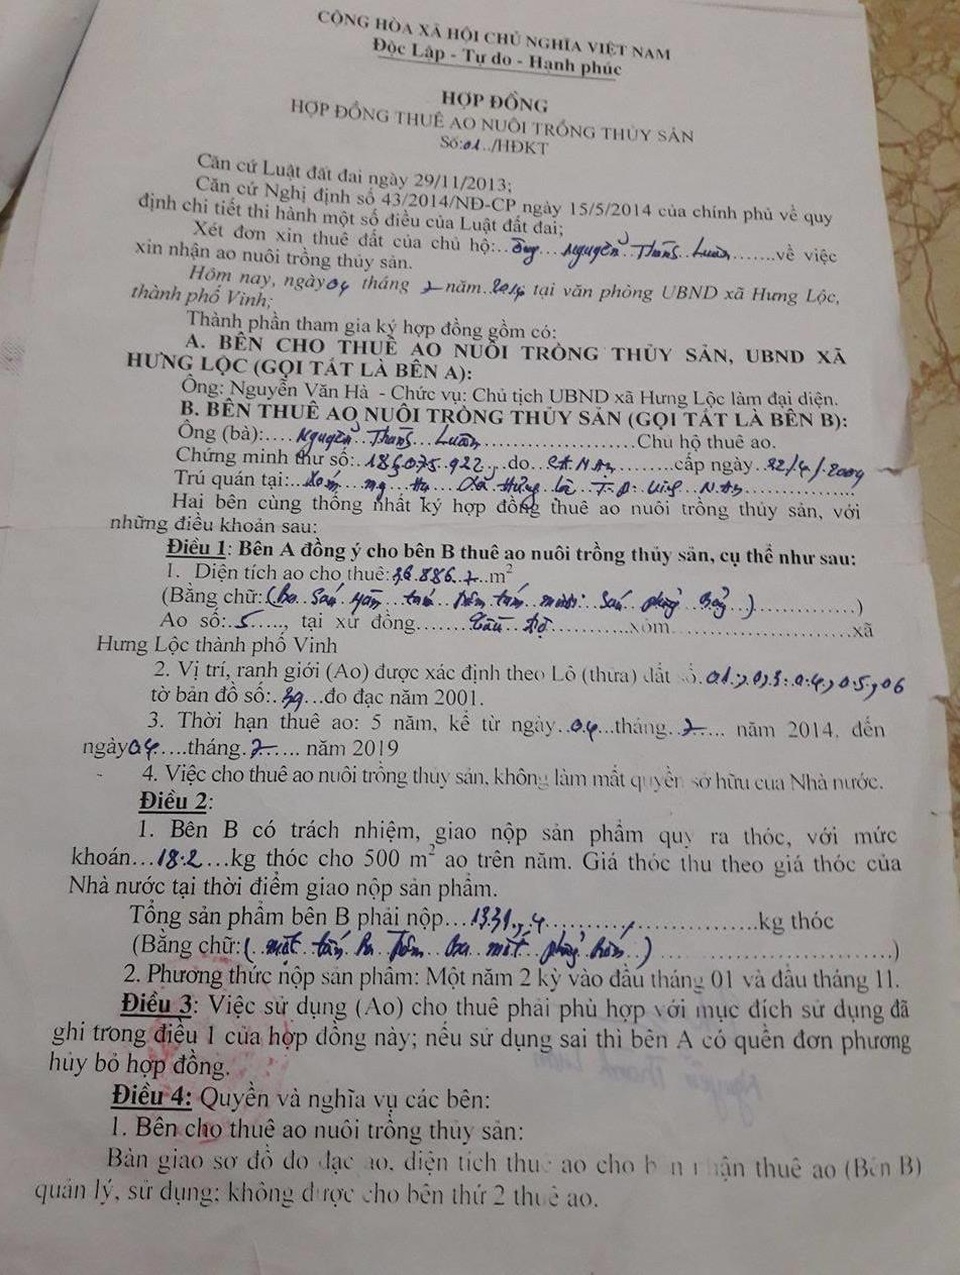 CỘNG HÒA XÃ HỘI CHỦ NGHĨA VIỆT NAM
Độc Lập - Tự do - Hạnh phúc
HỢP ĐỒNG
HỢP ĐỒNG THUÊ AO NUÔI TRỒNG THỦY SẢN
Số:01../HĐKT
Căn cứ Luật đất đai ngày 29/11/2013;
Căn cứ Nghị định số 43/2014/NĐ-CP ngày 15/5/2014 của chính phủ về quy
định chi tiết thi hành một số điều của Luật đất đai;
Xét đơn xin thuê đất của chủ hộ:..Ông...Nguyễn Thanh Luân.......về việc
xin nhận ao nuôi trồng thủy sản.
Hôm nay, ngày 04 tháng 7 năm..2014 tại văn phòng UBND xã Hưng Lộc,
thành phố Vinh;
Thành phần tham gia ký hợp đồng gồm có:
A. BÊN CHO THUÊ AO NUÔI TRỒNG THỦY SẢN, UBND XÃ
HƯNG LỘC (GỌI TẮT LÀ BÊN A):
Ông: Nguyễn Văn Hà - Chức vụ: Chủ tịch UBND xã Hưng Lộc làm đại diện.
B. BÊN THUÊ AO NUÔI TRỒNG THỦY SẢN (GỌI TẮT LÀ BÊN B):
Ông (bà):....Nguyễn Thanh Luân....................Chủ hộ thuê ao.
Chứng minh thư số:.186075.922..,do..CA.N.An........cấp ngày.22/4/.2004
Trú quán tại:...Xóm...mỹ..Hạ...Xã Hưng Lộc T.P. Vinh..N.An..............
Hai bên cùng thống nhất ký hợp đồng thuê ao nuôi trồng thủy sản, với
những điều khoản sau:
Điều 1: Bên A đồng ý cho bên B thuê ao nuôi trồng thủy sản, cụ thể như sau:
1. Diện tích ao cho thuê:36.886.7..m²
(Bằng chữ:(Ba Sáu ngàn tám trăm tám mươi Sáu phẩy Bảy..).............)
Ao số:..5....., tại xứ đồng.......Cầu..............xóm.......................xã
Hưng Lộc thành phố Vinh
2. Vị trí, ranh giới (Ao) được xác định theo Lô (thửa) đất số.01.,0,3.0.4.,0.5,06
tờ bản đồ số:.39...đo đạc năm 2001.
3. Thời hạn thuê ao: 5 năm, kể từ ngày..04...tháng..7.... năm 2014, đến
ngày04....tháng.7..... năm 2019
- 4. Việc cho thuê ao nuôi trồng thủy sản, không làm mất quyền sở hữu của Nhà nước.
Điều 2:
1. Bên B có trách nhiệm, giao nộp sản phẩm quy ra thóc, với mức
khoán...18.2...kg thóc cho 500 m² ao trên năm. Giá thóc thu theo giá thóc của
Nhà nước tại thời điểm giao nộp sản phẩm.
Tổng sản phẩm bên B phải nộp...1331.,4.........,...............kg thóc
(Bằng chữ:(..một tấn Ba Trăm ba mốt phẩy bốn..)........................)
2. Phương thức nộp sản phẩm: Một năm 2 kỳ vào đầu tháng 01 và đầu tháng 11.
Điều 3: Việc sử dụng (Ao) cho thuê phải phù hợp với mục đích sử dụng đã
ghi trong điều 1 của hợp đồng này; nếu sử dụng sai thì bên A có quền đơn phương
hủy bỏ hợp đồng.
Điều 4: Quyền và nghĩa vụ các bên:
1. Bên cho thuê ao nuôi trồng thủy sản:
Bàn giao sơ đồ đo đạc ao, diện tích thuê ao cho bên nhận thuê ao (Bên B)
quản lý, sử dụng; không được cho bên thứ 2 thuê ao.